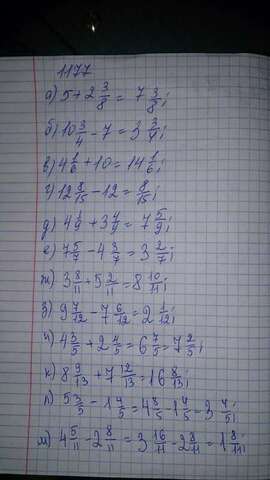 1177
а) 5 + 2 3/8 = 7 3/8;
б) 10 3/4 - 7 = 3 3/4;
в) 4 1/6 + 10 = 14 1/6;
г) 12 8/15 - 12 = 8/15;
д) 4 1/9 + 3 4/9 = 7 5/9;
е) 7 5/7 - 4 3/7 = 3 2/7;
ж) 3 8/11 + 5 2/11 = 8 10/11;
з) 9 7/12 - 7 6/12 = 2 1/12;
и) 4 3/5 + 2 4/5 = 6 7/5 = 7 2/5;
к) 8 9/13 + 7 12/13 = 16 8/13;
л) 5 3/5 - 1 4/5 = 4 8/5 - 1 4/5 = 3 4/5;
м) 4 5/11 - 2 8/11 = 3 16/11 - 2 8/11 = 1 8/11;